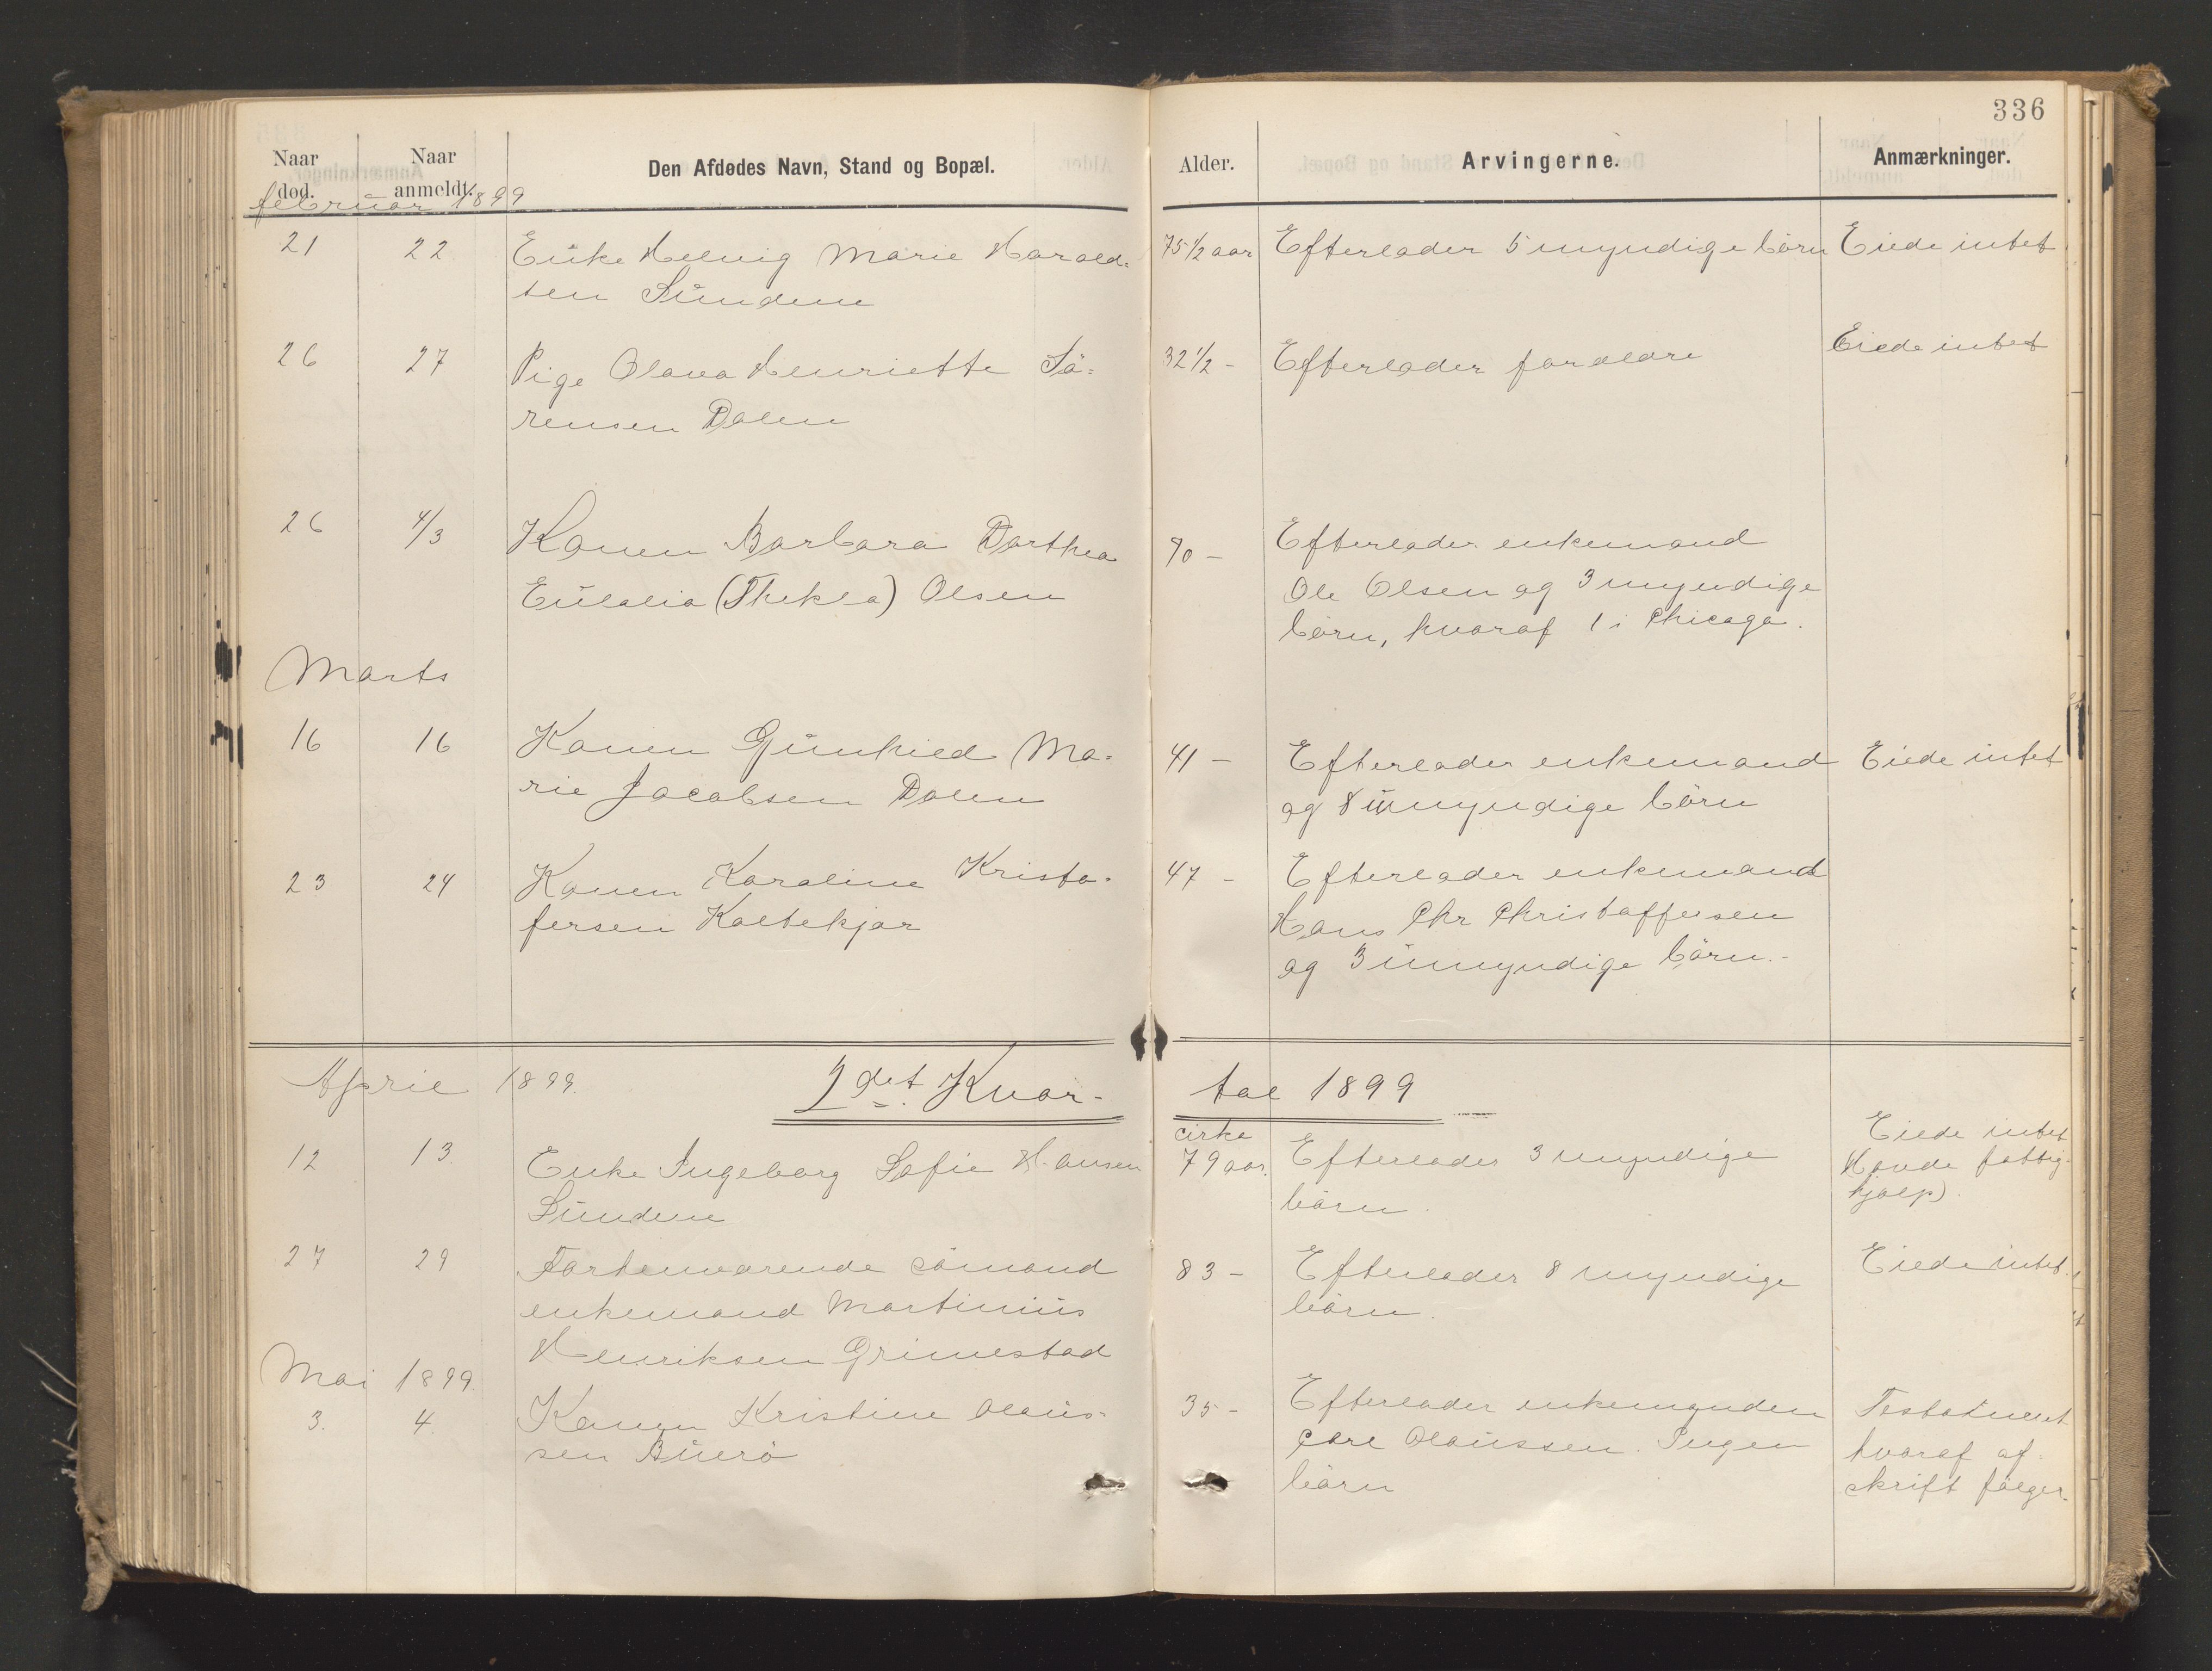 336
Naar død. Naar anmeldt. Den Afdødes Navn, Stand og Bopæl. Alder. Arvingerne. Anmærkninger.
februar 1899
21 22 Enke Helvig Marie Harald= 75 1/2 aar Efterlader 5 myndige børn Eiede intet
sen Sundene
26 27 Pige Olava Henriette Sö= 32 1/2 - Efterlader forældre Eiede intet
rensen Dalen
26 4/3 Konen Barbara Dorthea 70 - Efterlader enkemand
Eulalia (Thekla) Olsen Ole Olsen og 3 myndige
börn, hvoraf 1 i Chicago.
Marts
16 16 Konen Gunhild Ma= 41 - Efterlader enkemand Eiede intet
rie Jacobsen Dalen og 8 umyndige börn
23 24 Konen Karoline Kristo= 47 - Efterlader enkemand
fersen Kaltekjær Hans Chr Christoffersen
og 3 umyndige börn.-
April 1899 2det Kvar- tal 1899
12 13 Enke Ingeborg Sofie Hansen cirka 79 aar. Efterlader 3 myndige Eiede intet
Sundene börn. Havde fattig-
hjælp)
27 29 Forhenværende sömand 83 - Efterlader 8 myndige Eiede intet.
enkemand Martinius börn.
Henriksen Grimestad
Mai 1899
3. 4 Konen Kristine Olaus= 35 - Efterlader enkemanden Testament
sen Buerö Carl Olaussen. Ingen hvoraf af-
börn skrift fölger.